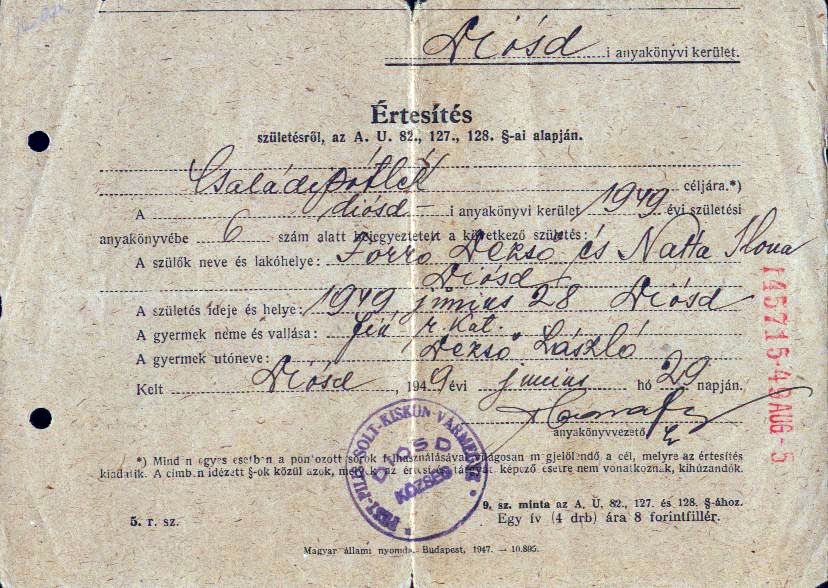 Diósd i anyakönyvi kerület.
Értesítés
születésről, az A. U. 82., 127., 128. §-ai alapján.
Családipótlék céljára.*)
A diósd- i anyakönyvi kerület 1949 évi születési
anyakönyvébe 6 szám alatt bejegyeztetett a következő születés:
A szülők neve és lakóhelye: Forró Dezső és Natta Ilona
Diósd
A születés ideje és helye: 1949 június 28 Diósd
A gyermek neme és vallása: fiú r. kat.
A gyermek utóneve: Dezső László
Kelt Diósd, 1949 évi junius hó 29 napján.
anyakönyvvezető
PEST-PILIS-SOLT-KISKUN VÁRMEGYE
DIÓSD
KÖZSÉG
145715-49AUG-5
*) Minden egyes esetben a pontozott sorok felhasználásával világosan megjelölendő a cél, melyre az értesítés
kiadatik. A címben idézett §-ok közül azok, melyek az értesítés tárgyát képező esetre nem vonatkoznak, kihúzandók.
5. r. sz.
9. sz. minta az A. U. 82., 127. és 128. §-ához.
Egy ív (4 drb) ára 8 forintfillér.
Magyar állami nyomda, Budapest, 1947. — 10.895.